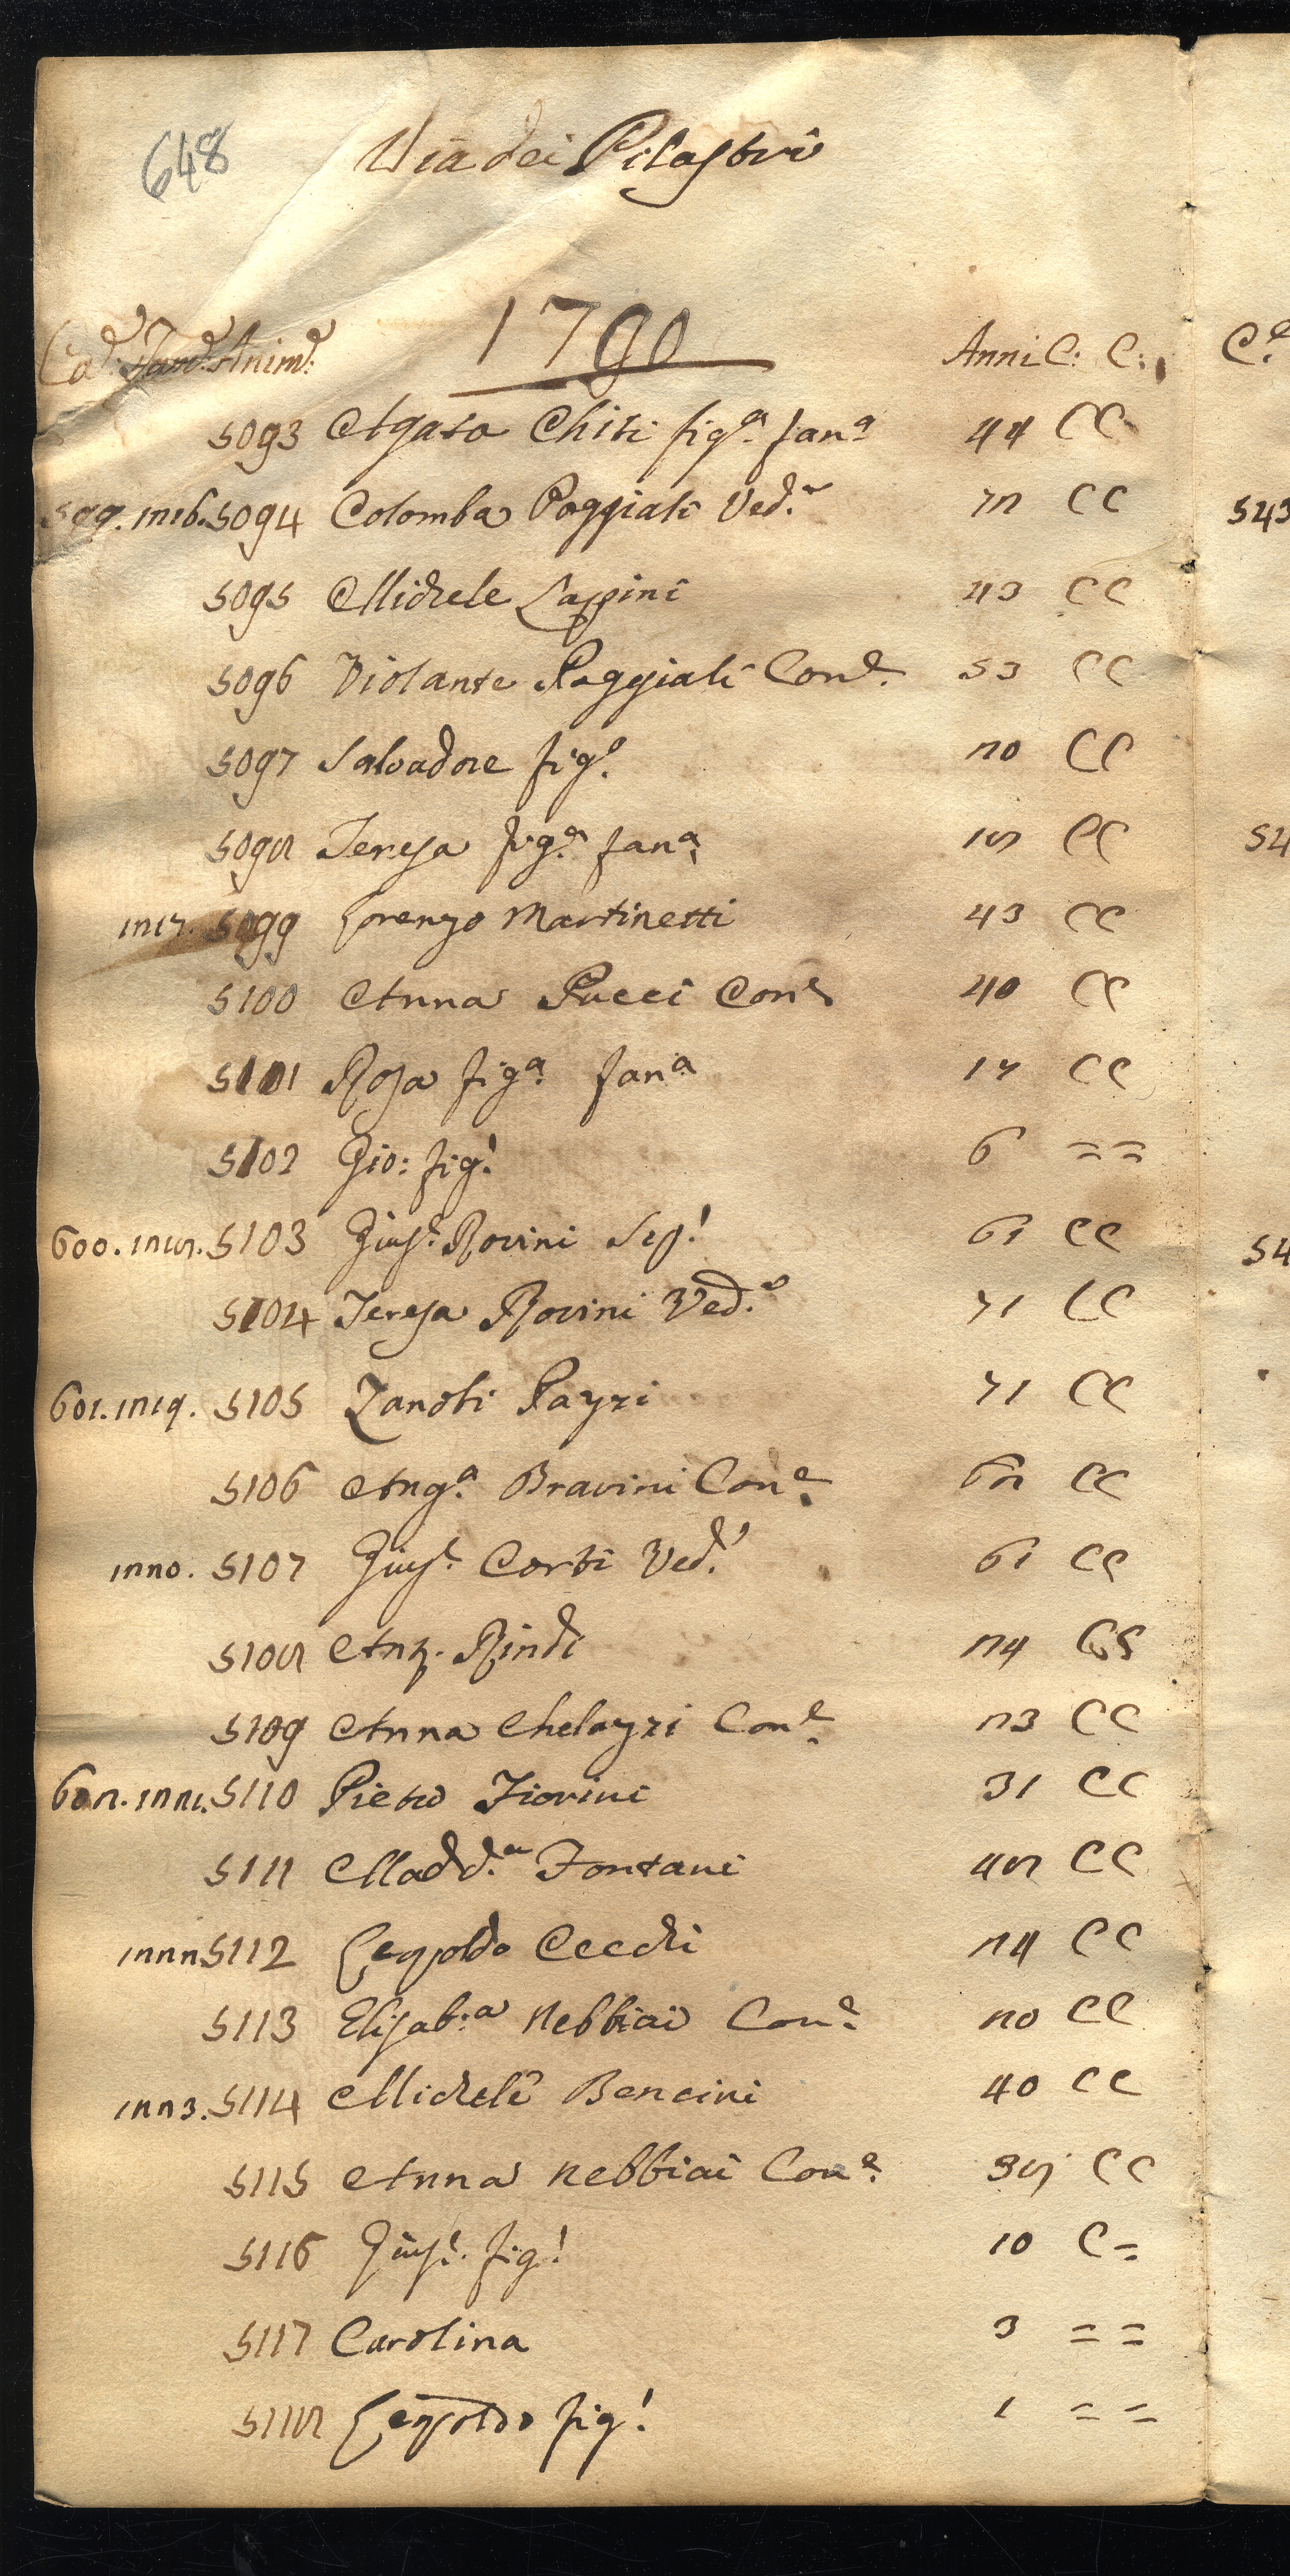 648
Via dei Pilastri
1790
Ca.e Fam.e Anim.e Anni C: C: C.e
5093 Agata Chiti fig.a fan.a 44 CC
599. 1216. 5094 Colomba Poggiali Ved.a 72 CC 543
5095 Michele Lappini 43 CC
5096 Violante Poggiali Con.e 53 CC
5097 Salvadore fig.o 20 CC
5098 Teresa fig.a fan.a 18 CC 54
1217. 5099 Lorenzo Martinetti 43 CC
5100 Anna Pucci Con.e 40 CC
5101 Rosa fig.a fan.a 17 CC
5102 Gio: fig.o 6 = =
600. 1218. 5103 Gius.e Rovini 61 CC 54
5104 Teresa Rovini Ved.a 71 CC
601. 1219. 5105 Zanobi Pazzi 71 CC
5106 Ang.a Bravini Con.e CC
1220. 5107 Gius.e Corti Ved.o 61 CC
5108 Rindi 24 CC
5109 Anna Chelazzi Con.e 23 CC
602. 1221. 5110 Pietro Fiorini 31 CC
5111 Madd.a Fontani 48 CC
1222 5112 Leopoldo Cecchi 24 CC
5113 Elisab.a Nebbiai Con.e 20 CC
1223. 5114 Michele Bencini 40 CC
5115 Anna Nebbiai Con.e 38 CC
5116 Gius.e fig.o 10 C =
5117 Carolina 3 = =
5118 Leopoldo fig.o 1 = =